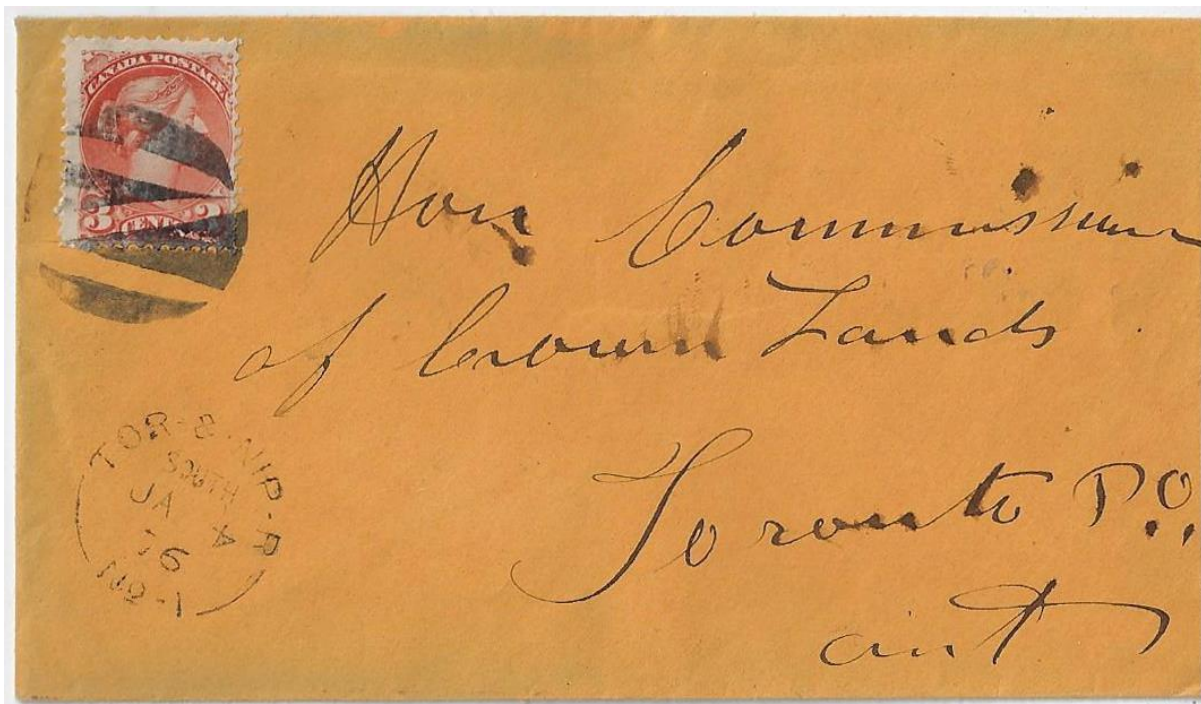 CANADA POSTAGE
3 CENTS 3
Hon Commissioner
of Crown Lands
Toronto P.O.
Ont
TOR-&-NIP-R
SOUTH
JA
No-1